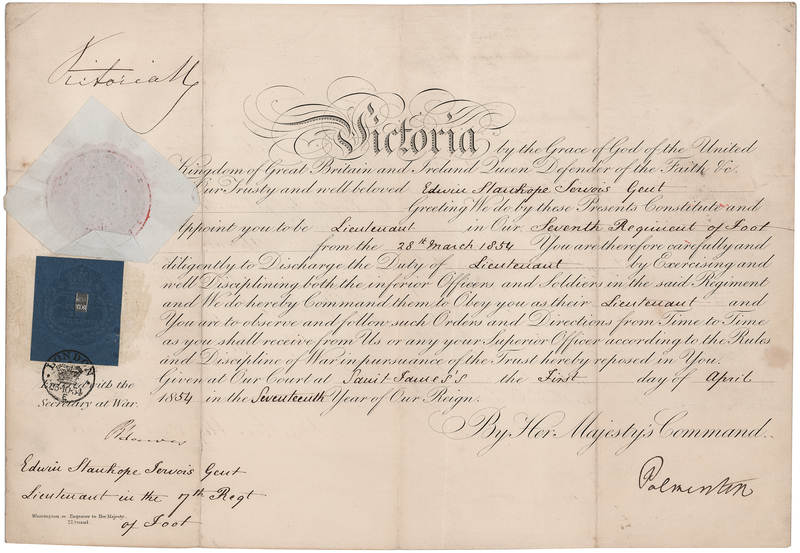 Victoria R
Victoria by the Grace of God of the United
Kingdom of Great Britain and Ireland Queen Defender of the Faith &c.
Our Trusty and well beloved Edwin Stanhope Jervois Gent
Greeting We do by these Presents Constitute and
Appoint you to be Lieutenant in Our Seventh Regiment of Foot
from the 28th March 1854 You are therefore carefully and
diligently to Discharge the Duty of Lieutenant by Exercising and
well Disciplining both the inferior Officers and Soldiers in the said Regiment
and We do hereby Command them to Obey you as their Lieutenant and
You are to observe and follow such Orders and Directions from Time to Time
as you shall receive from Us or any your Superior Officer according to the Rules
and Discipline of War in pursuance of the Trust hereby reposed in You.
Given at Our Court at Saint James's the First day of April
1854 in the Seventeenth Year of Our Reign.
By Her Majesty's Command.
Palmerston
LONDON
Entered with the
Secretary at War.
Edwin Stanhope Jervois Gent
Lieutenant in the 7th Regt
of Foot
Engraver to Her Majesty,
Strand.